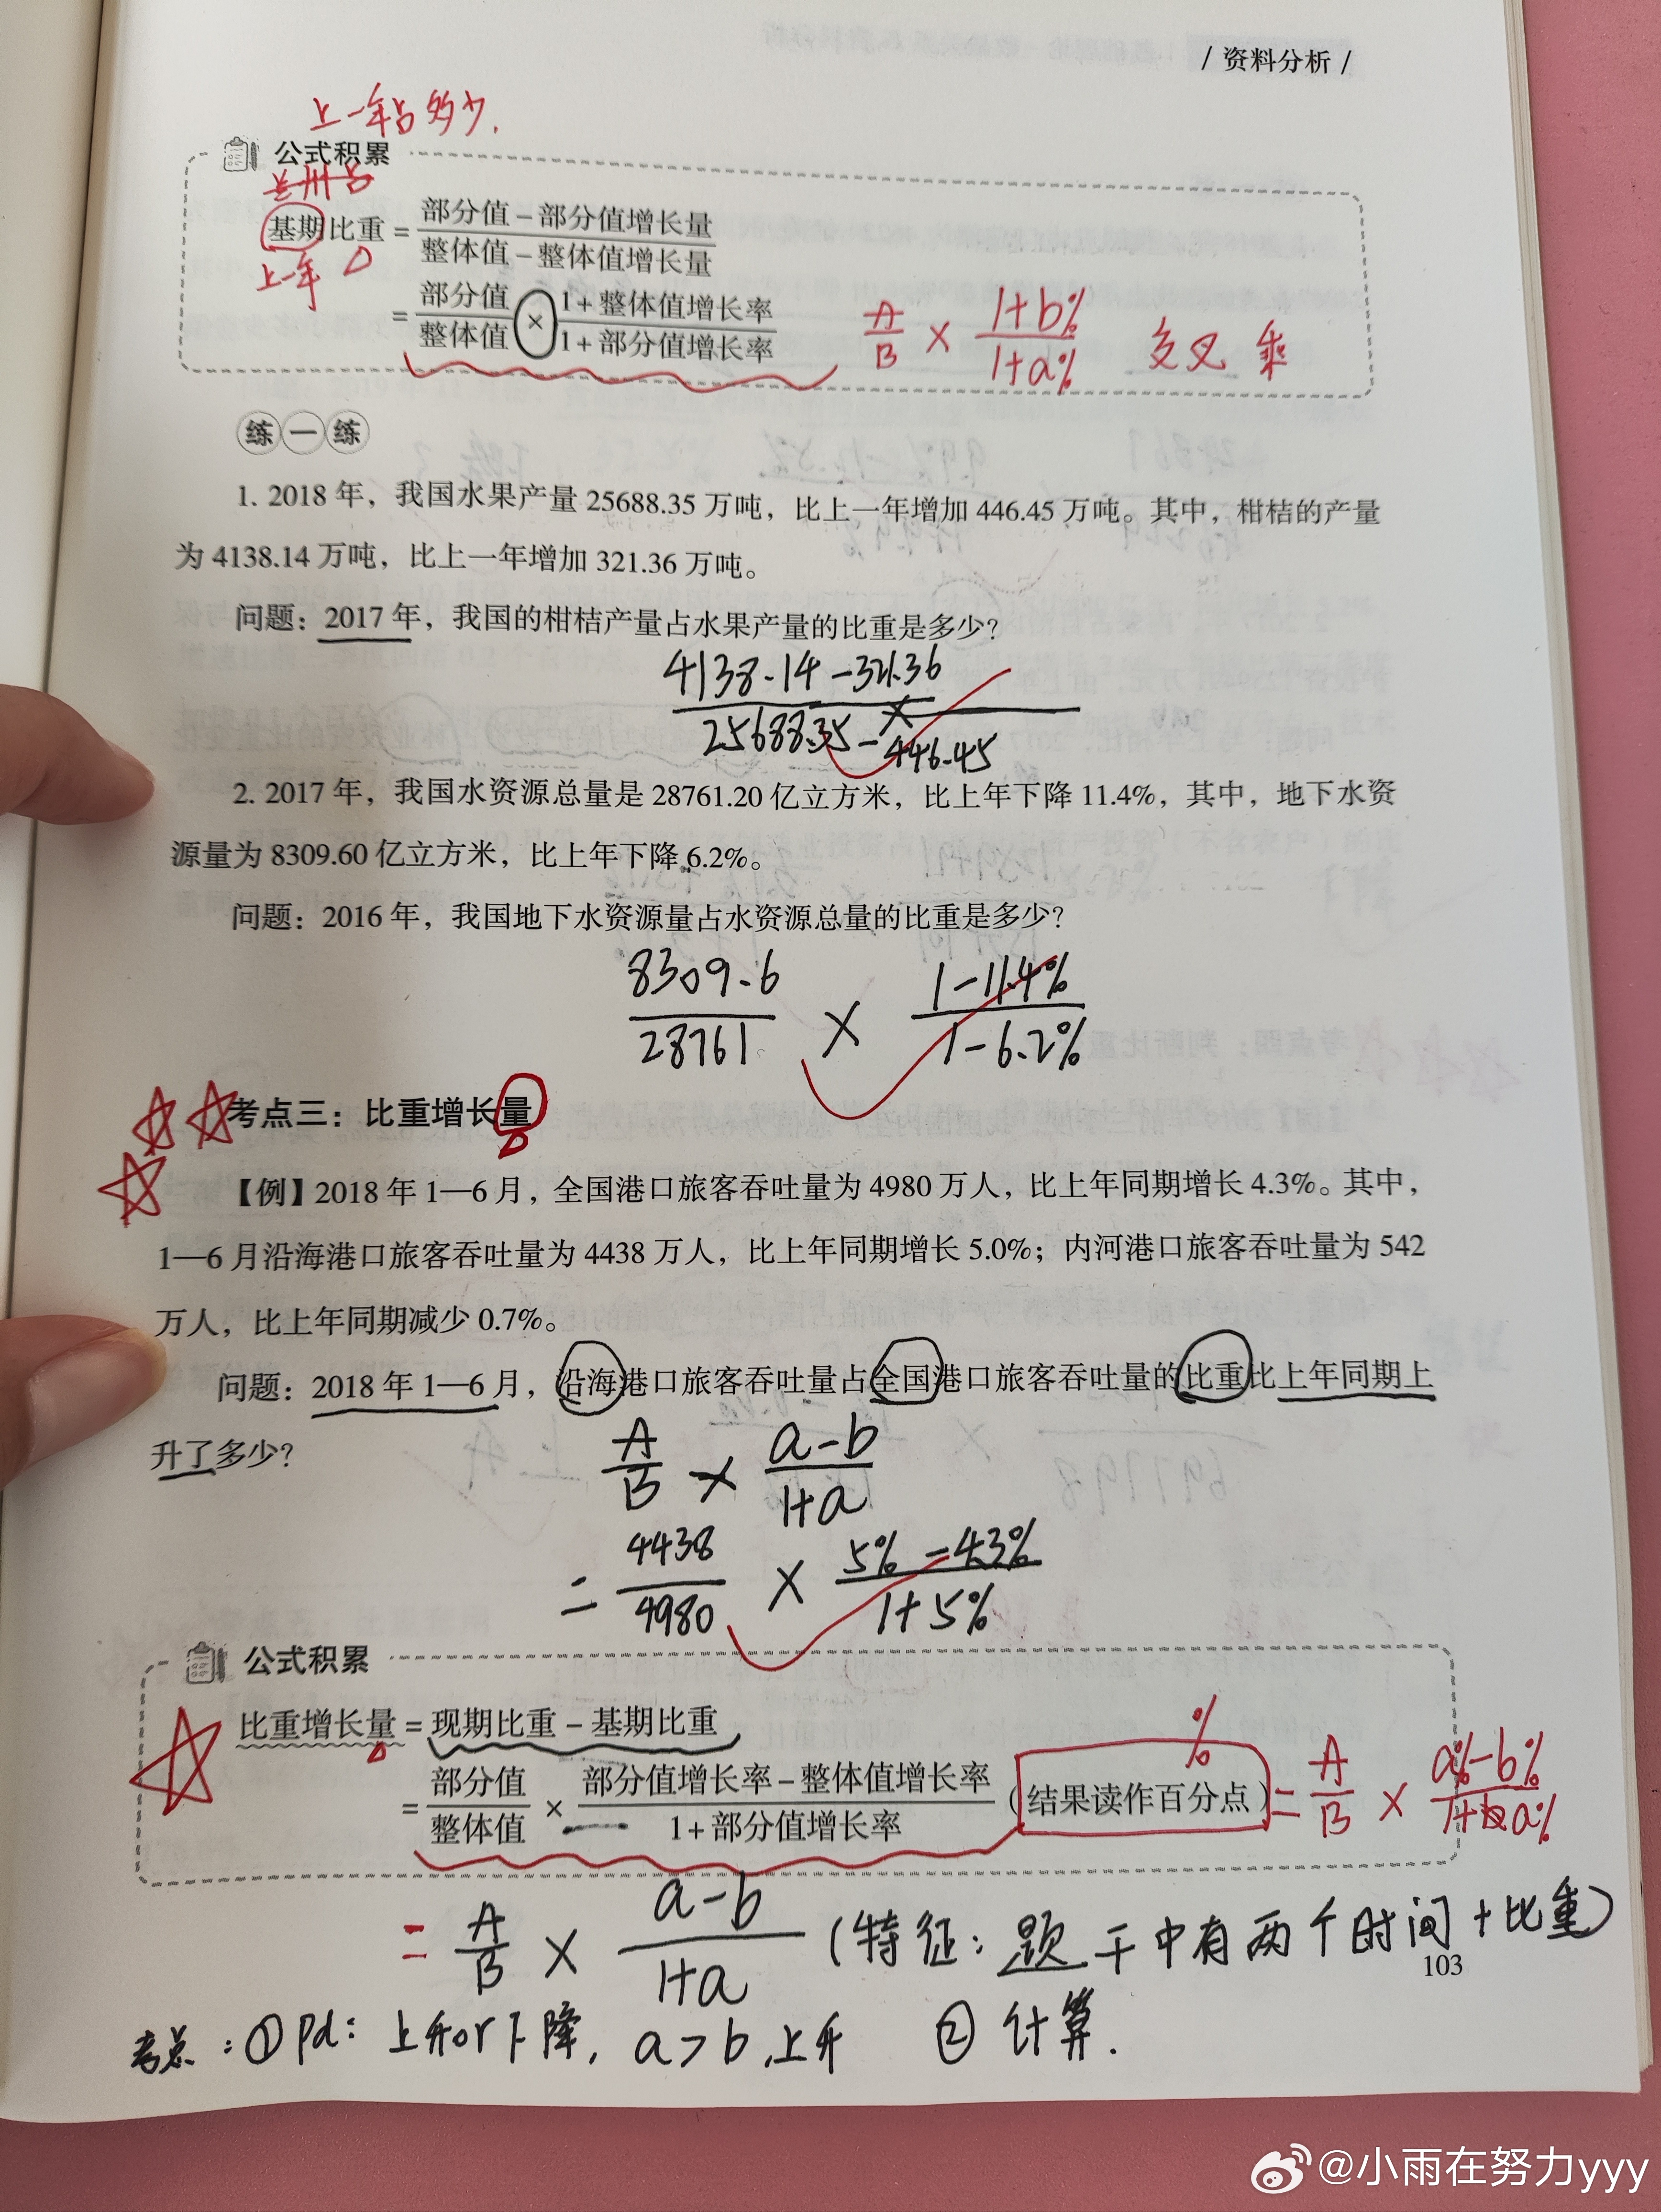 / 资料分析 /
上一年占多少.
公式积累
兰州占
基期比重 = 部分值 − 部分值增长量 / 整体值 − 整体值增长量
上一年
= 部分值 / 整体值 × 1 + 整体值增长率 / 1 + 部分值增长率
A/B × 1+b% / 1+a% 交叉乘
练一练
1. 2018 年，我国水果产量 25688.35 万吨，比上一年增加 446.45 万吨。其中，柑桔的产量
为 4138.14 万吨，比上一年增加 321.36 万吨。
问题：2017 年，我国的柑桔产量占水果产量的比重是多少？
4138.14 − 321.36
25688.35 − 446.45
2. 2017 年，我国水资源总量是 28761.20 亿立方米，比上年下降 11.4%，其中，地下水资
源量为 8309.60 亿立方米，比上年下降 6.2%。
问题：2016 年，我国地下水资源量占水资源总量的比重是多少？
8309.6 / 28761 × 1−11.4% / 1−6.2%
考点三：比重增长量
【例】2018 年 1—6 月，全国港口旅客吞吐量为 4980 万人，比上年同期增长 4.3%。其中，
1—6 月沿海港口旅客吞吐量为 4438 万人，比上年同期增长 5.0%；内河港口旅客吞吐量为 542
万人，比上年同期减少 0.7%。
问题：2018 年 1—6 月，沿海港口旅客吞吐量占全国港口旅客吞吐量的比重比上年同期上
升了多少？
A/B × a−b / 1+a
= 4438 / 4980 × 5% − 4.3% / 1+5%
公式积累
比重增长量 = 现期比重 − 基期比重
%
= 部分值 / 整体值 × 部分值增长率 − 整体值增长率 / 1 + 部分值增长率 （结果读作百分点） = A/B × a%−b% / 1+a%
= A/B × a−b / 1+a (特征：题干中有两个时间+比重)
103
考点：①pd：上升or下降，a>b，上升 ②计算.
@小雨在努力yyy